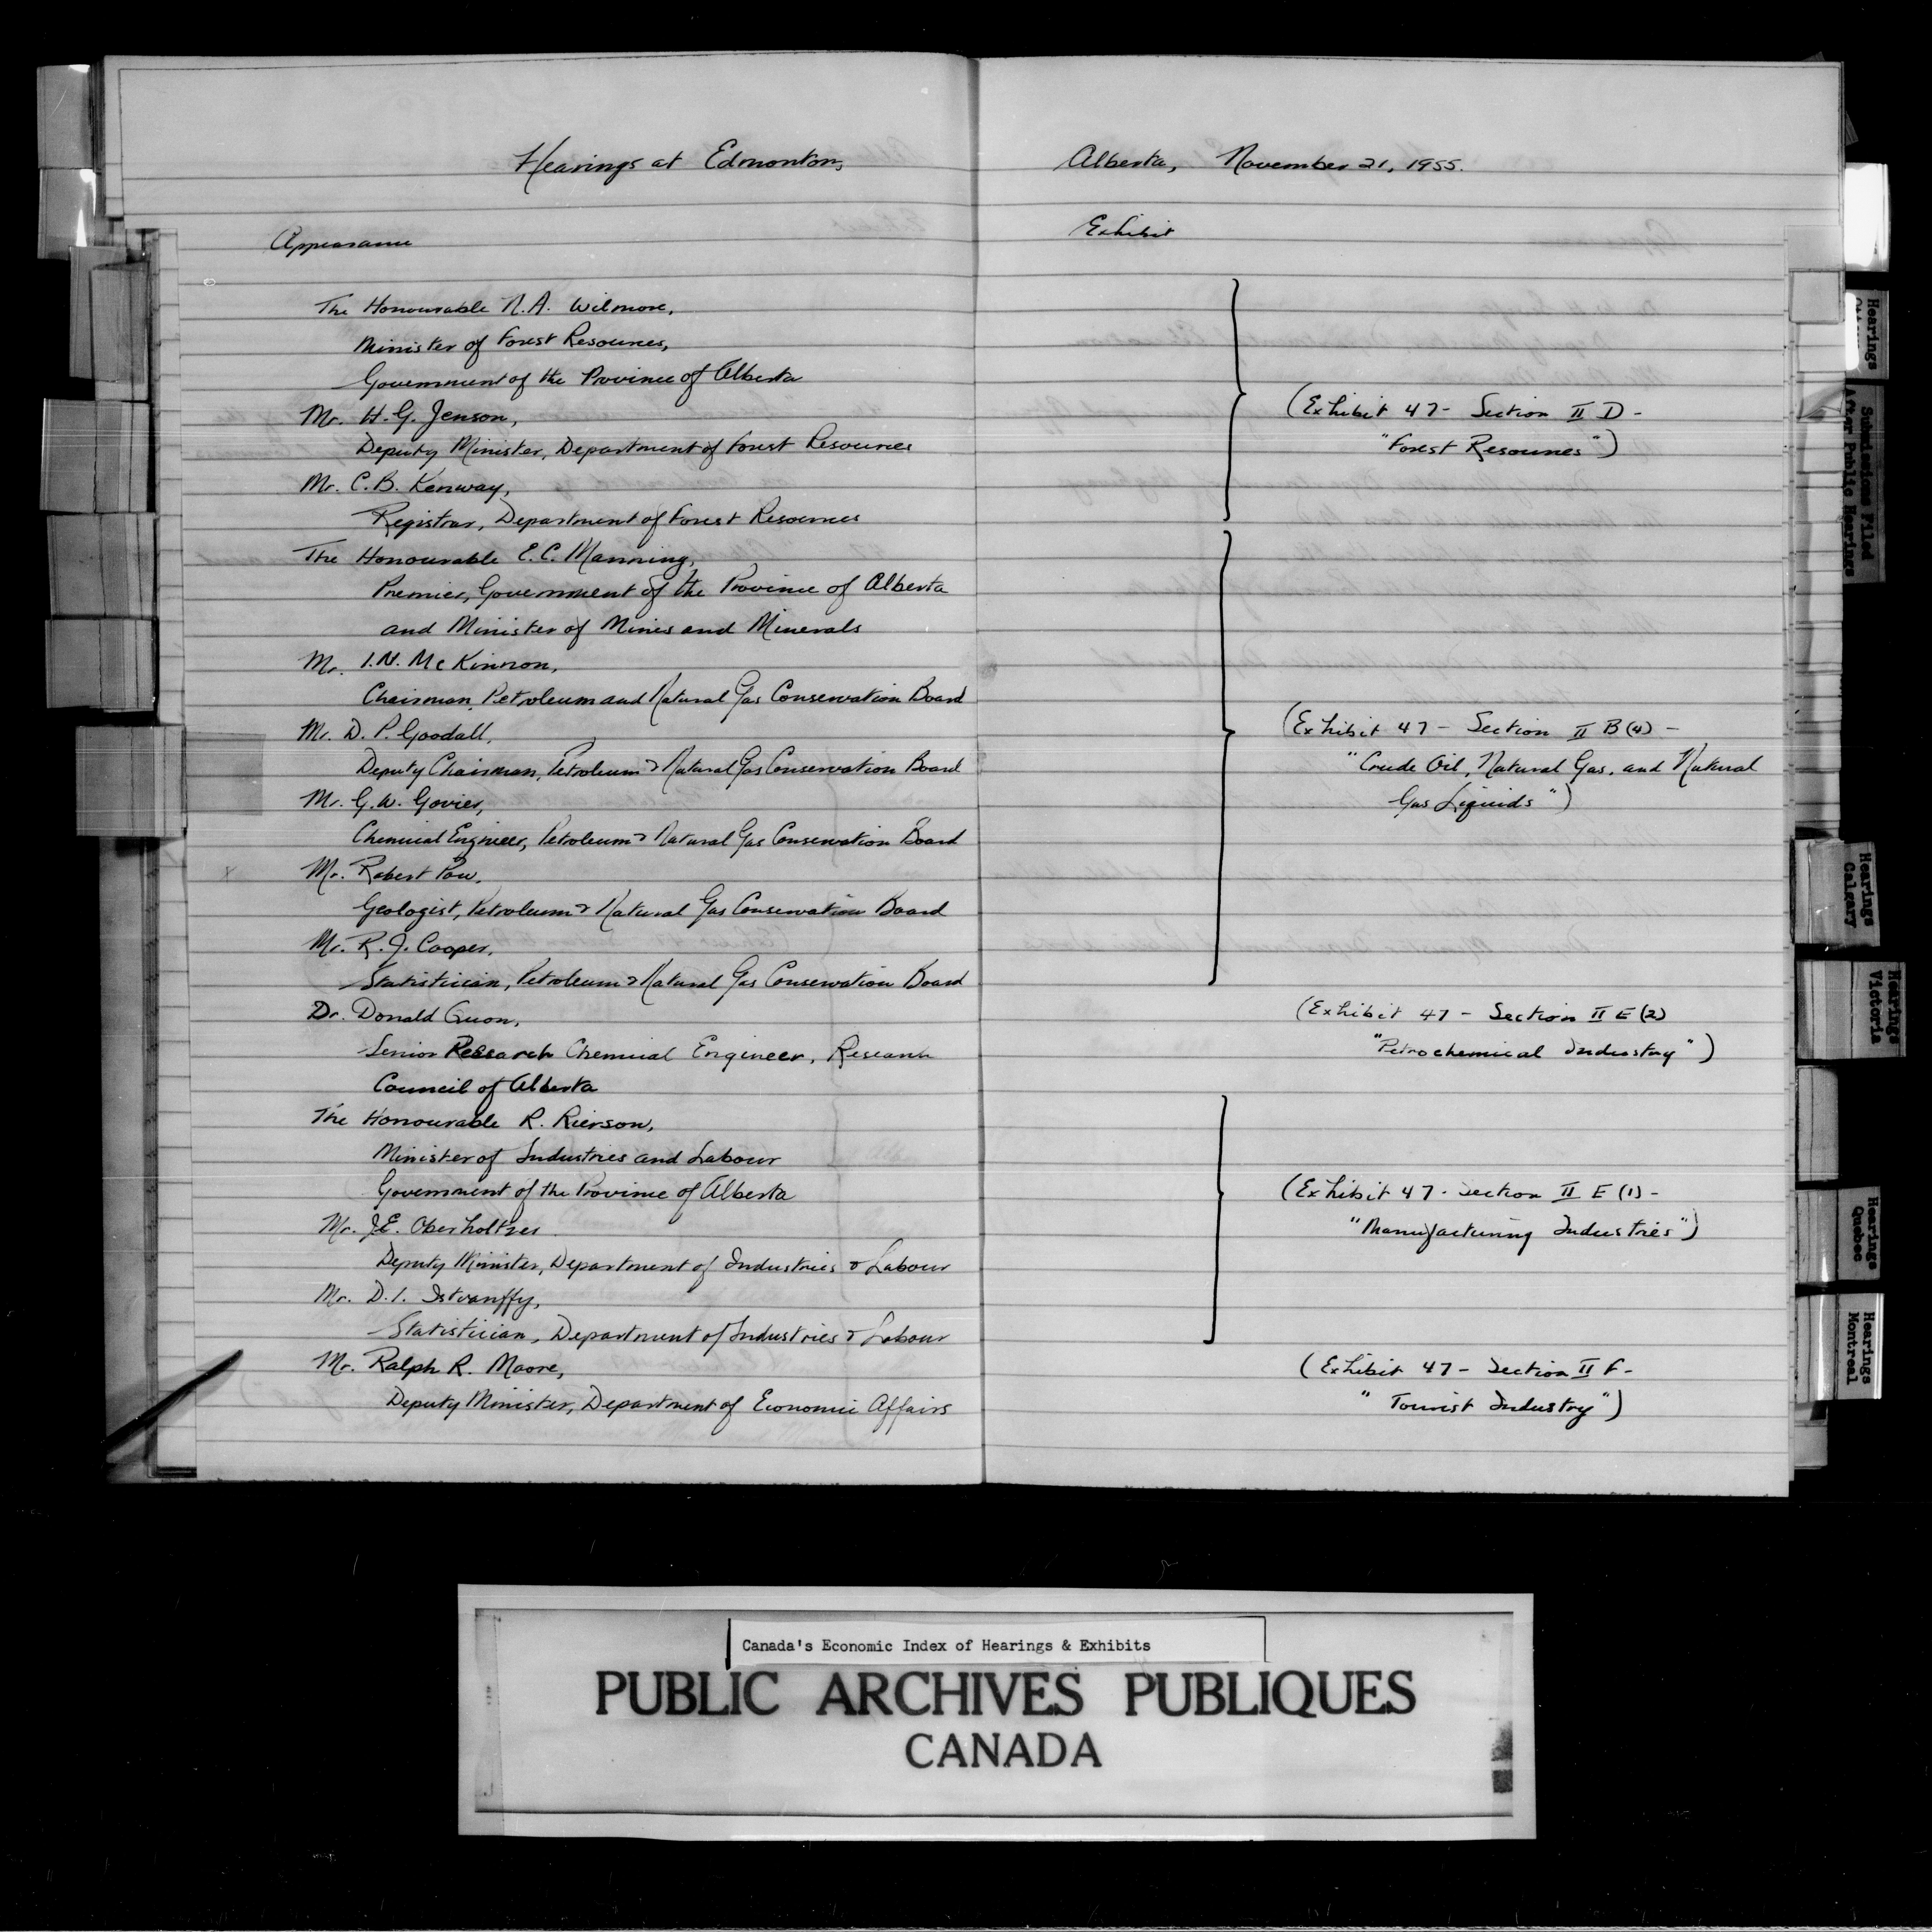 Hearings at Edmonton, Alberta, November 21, 1955.
Appearance
Exhibit
The Honourable N.A. Wilmore,
Minister of Forest Resources,
Government of the Province of Alberta
Mr. H.G. Jenson,
Deputy Minister, Department of Forest Resources
Mr. C.B. Kenway,
Registrar, Department of Forest Resources
(Exhibit 47- Section II D -
"Forest Resources")
The Honourable E.C. Manning,
Premier, Government of the Province of Alberta
and Minister of Mines and Minerals
Mr. I.N. McKinnon,
Chairman, Petroleum and Natural Gas Conservation Board
Mr. D. P. Goodall,
Deputy Chairman, Petroleum & Natural Gas Conservation Board
Mr. G.W. Govier,
Chemical Engineer, Petroleum & Natural Gas Conservation Board
Mr. Robert Pow,
Geologist, Petroleum & Natural Gas Conservation Board
Mr. R.J. Cooper,
Statistician, Petroleum & Natural Gas Conservation Board
(Exhibit 47 - Section II B (4) -
"Crude Oil, Natural Gas, and Natural
Gas Liquids")
Dr. Donald Quon,
Senior Research Chemical Engineer, Research
Council of Alberta
(Exhibit 47 - Section II E (2)
"Petrochemical Industry")
The Honourable R. Rierson,
Minister of Industries and Labour
Government of the Province of Alberta
Mr. J.E. Oberholtzer
Deputy Minister, Department of Industries & Labour
Mr. D.I. Istvanffy,
Statistician, Department of Industries & Labour
(Exhibit 47 - Section II E (1) -
"Manufacturing Industries")
Mr. Ralph R. Moore,
Deputy Minister, Department of Economic Affairs
(Exhibit 47 - Section II F -
"Tourist Industry")
Hearings
Submissions Filed
After Public Hearings
Hearings
Calgary
Hearings
Victoria
Hearings
Quebec
Hearings
Montreal
Canada's Economic Index of Hearings & Exhibits
PUBLIC ARCHIVES PUBLIQUES
CANADA